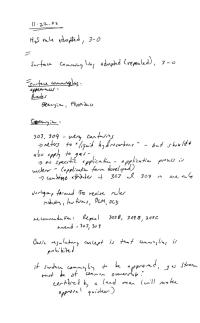 11-22-02
H2S rule adopted, 3-0
Surface commingling adopted (repealed), 3-0
Surface commingling -
appearances:
Commission:
303, 309 - very confusing
→ refers to "liquid hydrocarbons" - but should
also apply to gas -
→ no specific application - application process is
unclear - (application form developed)
→ combine 303 & 309 in one rule
workgroup formed to revise rules
industry,
recommendation: Repeal 309B,
amend - 303, 309
Basic regulatory concept is that commingling is
prohibited
if surface commingling to be approved, gas stream
must be of common ownership:
certified by a land man (will make
approval quicker)